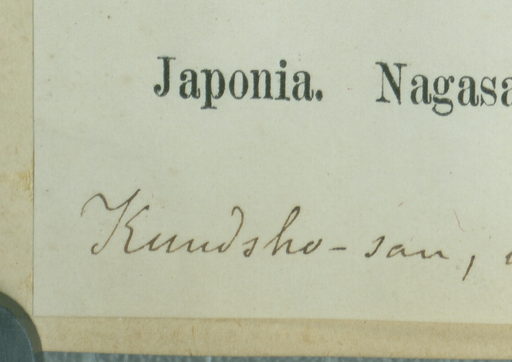 Japonia. Nagasa
Kundsho-san,